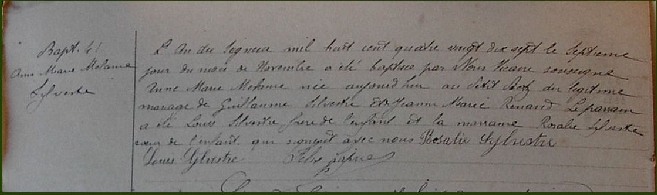 Bapt. 41
Anne Marie Mélanie
Sylvestre
L'An du Seigneur mil huit cent quatre vingt dix sept le septieme
jour du mois de Novembre a été baptisée par Nous Vicaire soussigné
Anne Marie Mélanie née aujourd'hui au Petit du légitime
mariage de Guillaume Silvestre et de Jeanne Marie Le parrain
a été Louis Silvestre frère de l'enfant et la marraine Rosalie Sylvestre
soeur de l'enfant qui signent avec nous Rosalie Sylvestre
Louis Sylvestre